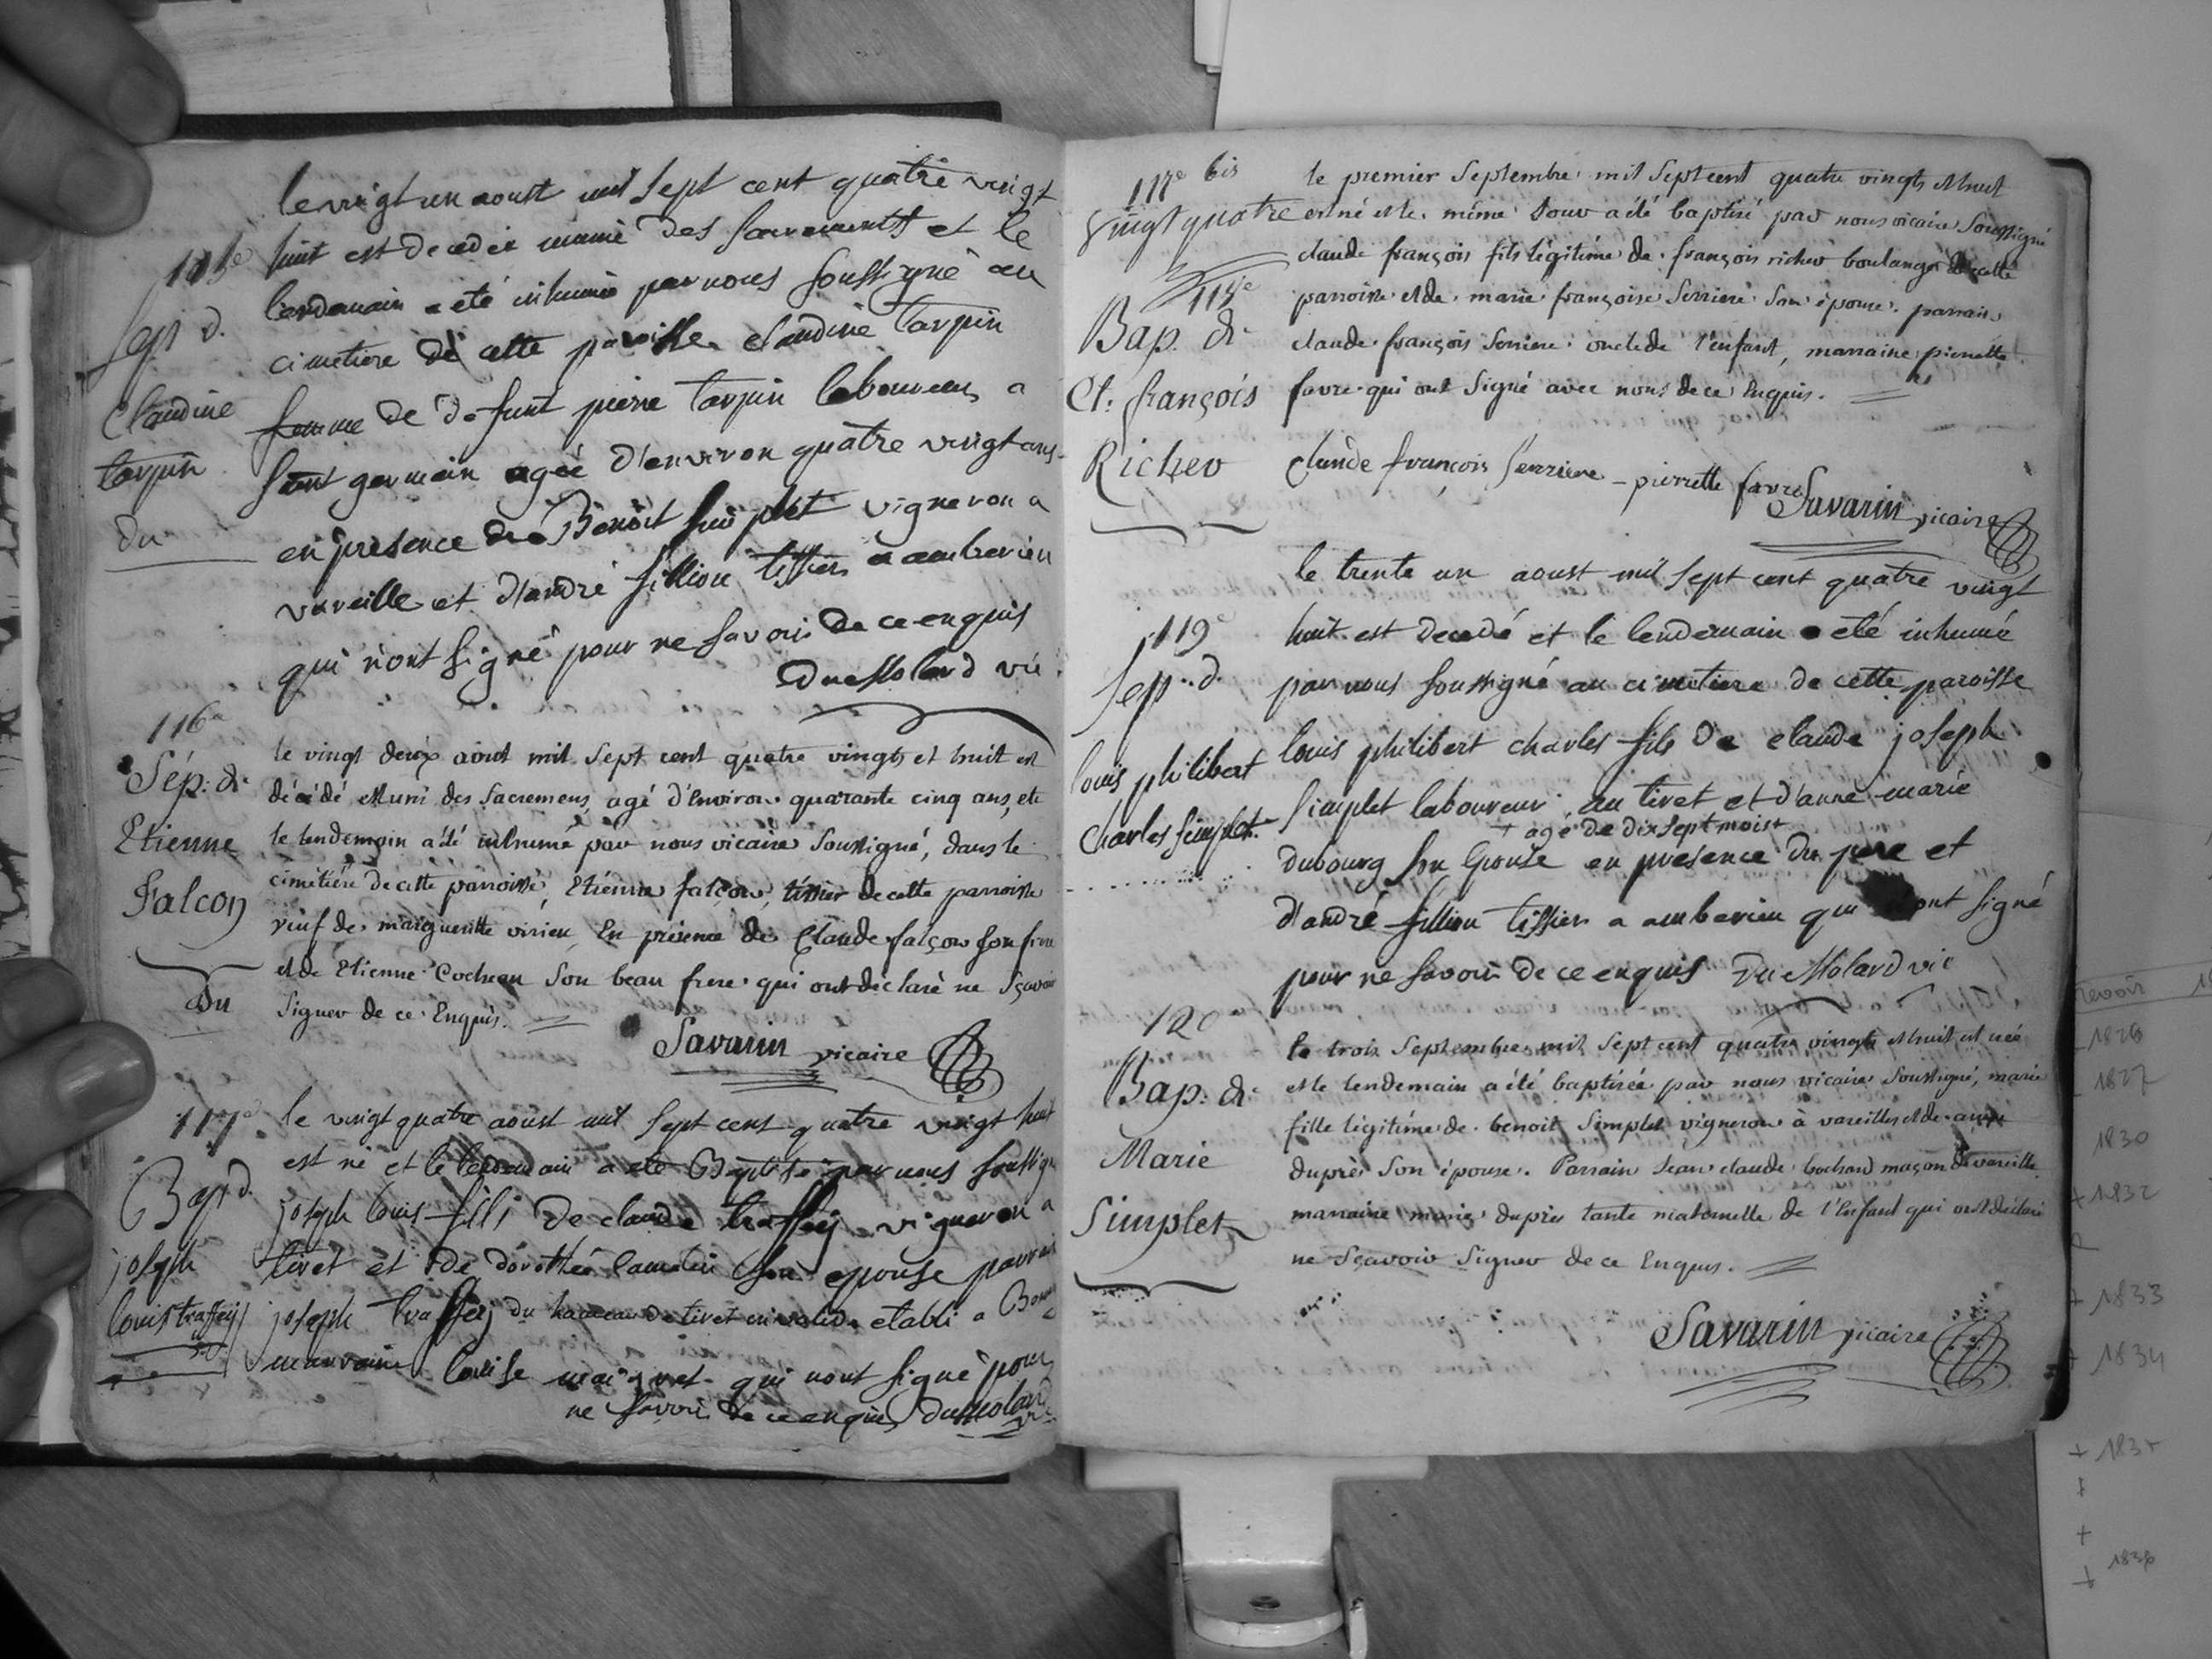 115e
Sep d.
Claudine
tarpin
du
le vingt un aoust mil sept cent quatre vingt
huit est decedée munie des sacrements et le
lendemain a eté inhumée par nous soussigné au
cimetiere de cette paroisse claudine tarpin
femme de defunt pierre tarpin laboureur a
saint germain agée d'environ quatre vingt ans
en presence de Benoit simplet vigneron a
vareille et d'andré fillion tissier a amberieu
qui n'ont signé pour ne savoir de ce enquis
Du Molard vic
116e
Sép: de
Etienne
Falcon
du
le vingt deux aout mil sept cent quatre vingts et huit est
décédé Muni des Sacremens, agé d'Environ quarante cinq ans, et
le lendemain a été inhumé par nous vicaire Soussigné, dans le
cimétiére de cette parroisse, Etienne falcon, tissier de cette parroisse
veuf de marguerite virieu, En présence de Claude falcon son frere
et de Etienne Cocheau Son beau frere qui ont déclaré ne Sçavoir
Signer de ce Enquis.
Savarin vicaire
117e
Bap d.
joseph
louis traffey
le vingt quatre aoust mil sept cent quatre vingt huit
est né et le lendemain a eté Baptisé par nous soussigné
joseph louis fils de claude traffey vigneron a
tiret et de dorothée son epouse parrain
joseph traffey du hameau de tiret invalide etabli a
marraine louise qui n'ont signé pour
ne savoir de ce enquis du molard
vic
117e bis
vingt quatre
118e
Bap. de
Cl. françois
Richer
le premier Septembre mil Sept cent quatre vingts et huit
est né et le même Jour a été baptisé par nous vicaire Soussigné
claude françois fils légitime de françois richer boulanger de cette
parroisse et de marie françoise Serriere Son épouse. parrain
claude françois Serriere oncle de l'enfant, marraine pierrette
favre qui ont Signé avec nous de ce Enquis.
Claude françois Serriere - pierrette favre
Savarin vicaire
119e
Sep: d.
louis philibert
charles simplet
le trente un aoust mil sept cent quatre vingt
huit est decedé et le lendemain a eté inhumé
par nous soussigné au cimetiere de cette paroisse
louis philibert charles fils de claude joseph
simplet laboureur au tiret et d'anne marie
+ agé de dix sept mois +
dubourg son Epouse en presence du pere et
d'andré fillion tissier a amberieu qui ont signé
pour ne savoir de ce enquis Du Molard vic
120e
Bap: de
Marie
Simplet
le trois Septembre mil Sept cent quatre vingts et huit est née
et le lendemain a été baptisée par nous vicaire Soussigné, marie
fille légitime de benoit Simplet vigneron à vareilles et de anne
duprès Son épouse. Parrain Jean claude bochard maçon de vareille
marraine marie duprès tante maternelle de l'Enfant qui ont déclaré
ne Sçavoir Signer de ce Enquis.
Savarin vicaire
revoir
1826
1827
1830
+ 1832
+ 1833
+ 1834
+ 1835
+
+
+ 1836